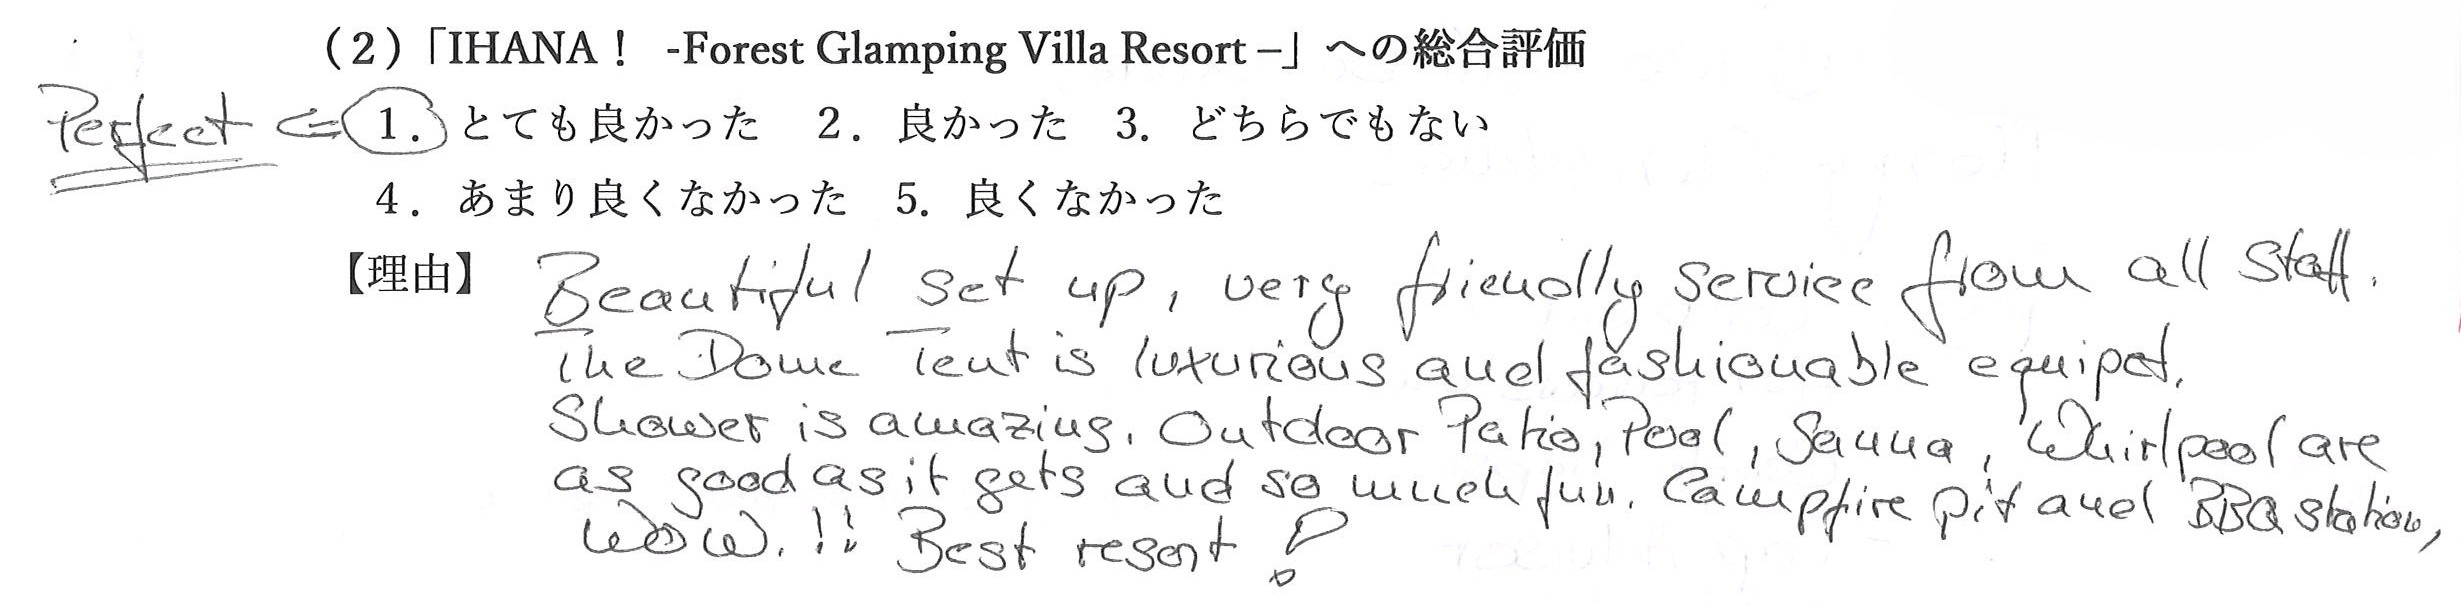 （2）「IHANA！ -Forest Glamping Villa Resort –」への総合評価
Perfect ⇐ 1. とても良かった 2. 良かった 3. どちらでもない
4. あまり良くなかった 5. 良くなかった
【理由】 Beautiful set up, very friendly service from all staff.
The Dome Tent is luxurious and fashionable equipet.
Shower is amazing. Outdoor Patio, Pool, Sauna, Whirlpool are
as good as it gets and so much fun. Campfire pit and BBQ station,
WOW.!! Best resort!